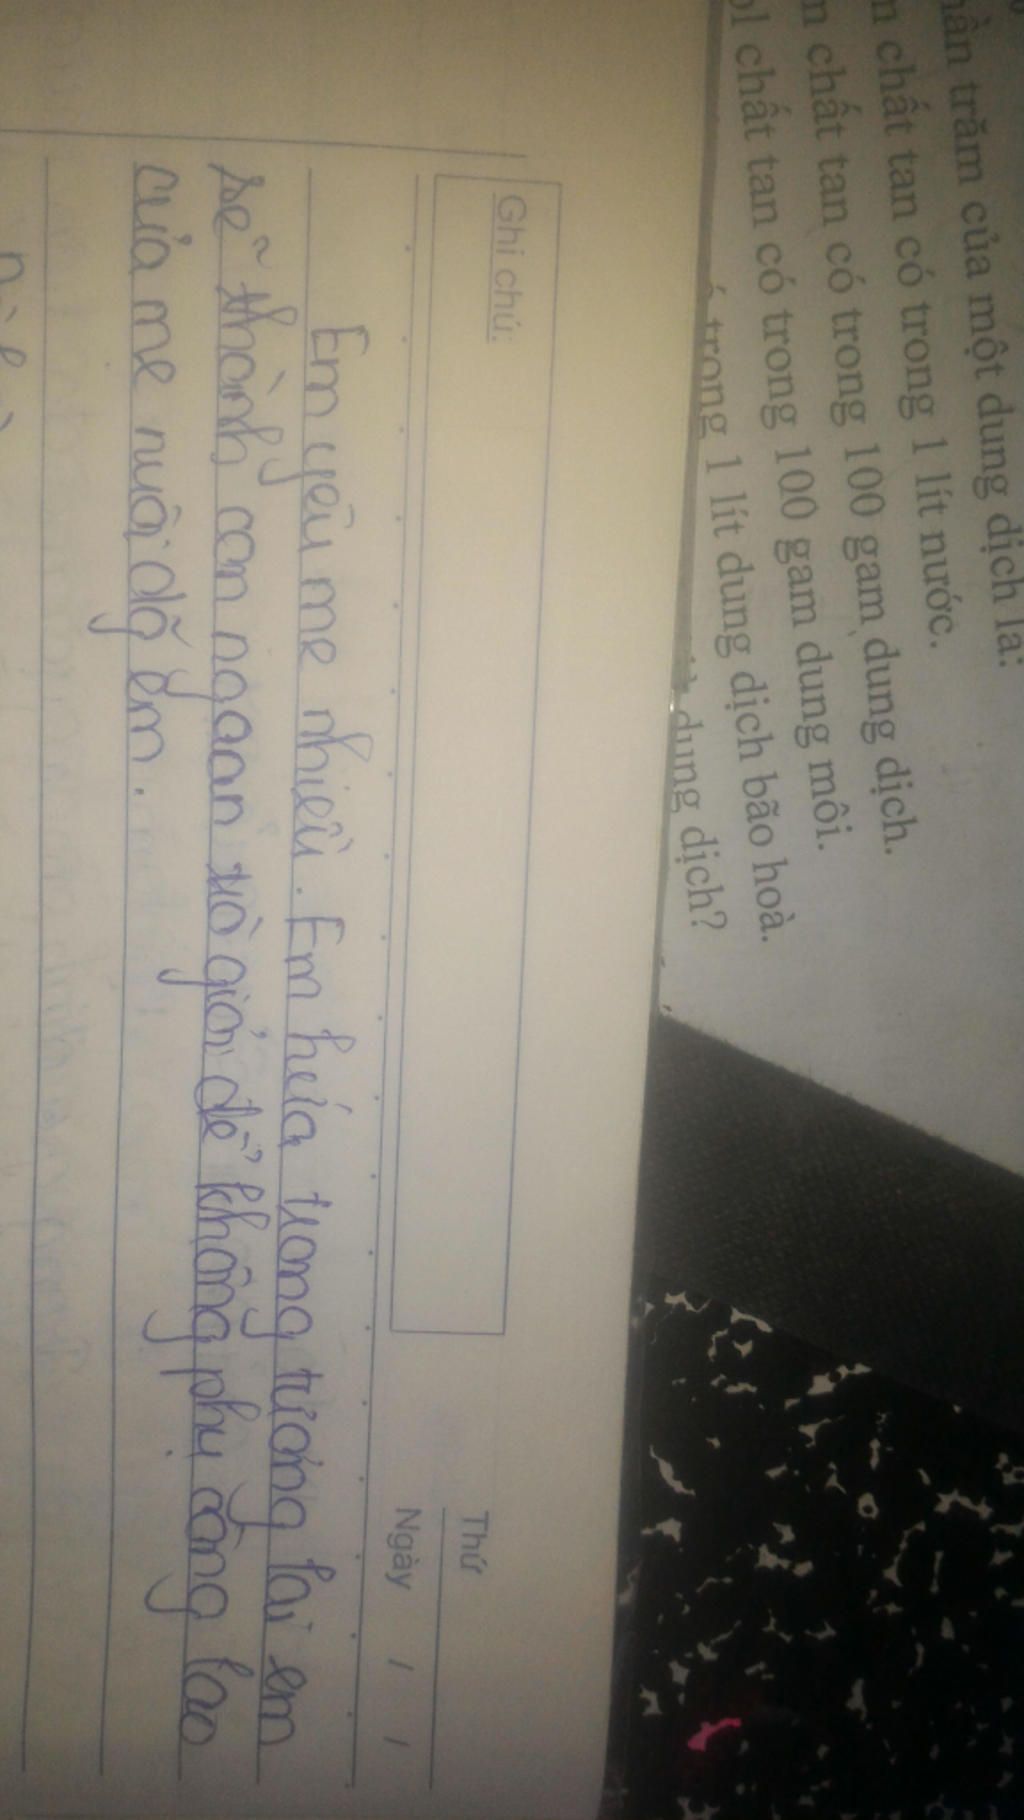 trăm của một dung dịch là:
chất tan có trong 1 lít nước.
chất tan có trong 100 gam dung dịch.
chất tan có trong 100 gam dung môi.
trong 1 lít dung dịch bão hoà.
dung dịch?
Ghi chú:
Thứ
Ngày / /
Em yêu mẹ nhiều. Em hứa trong tương lai em
sẽ thành con ngoan và giỏi để không phụ công lao
của mẹ nuôi dỡ em.